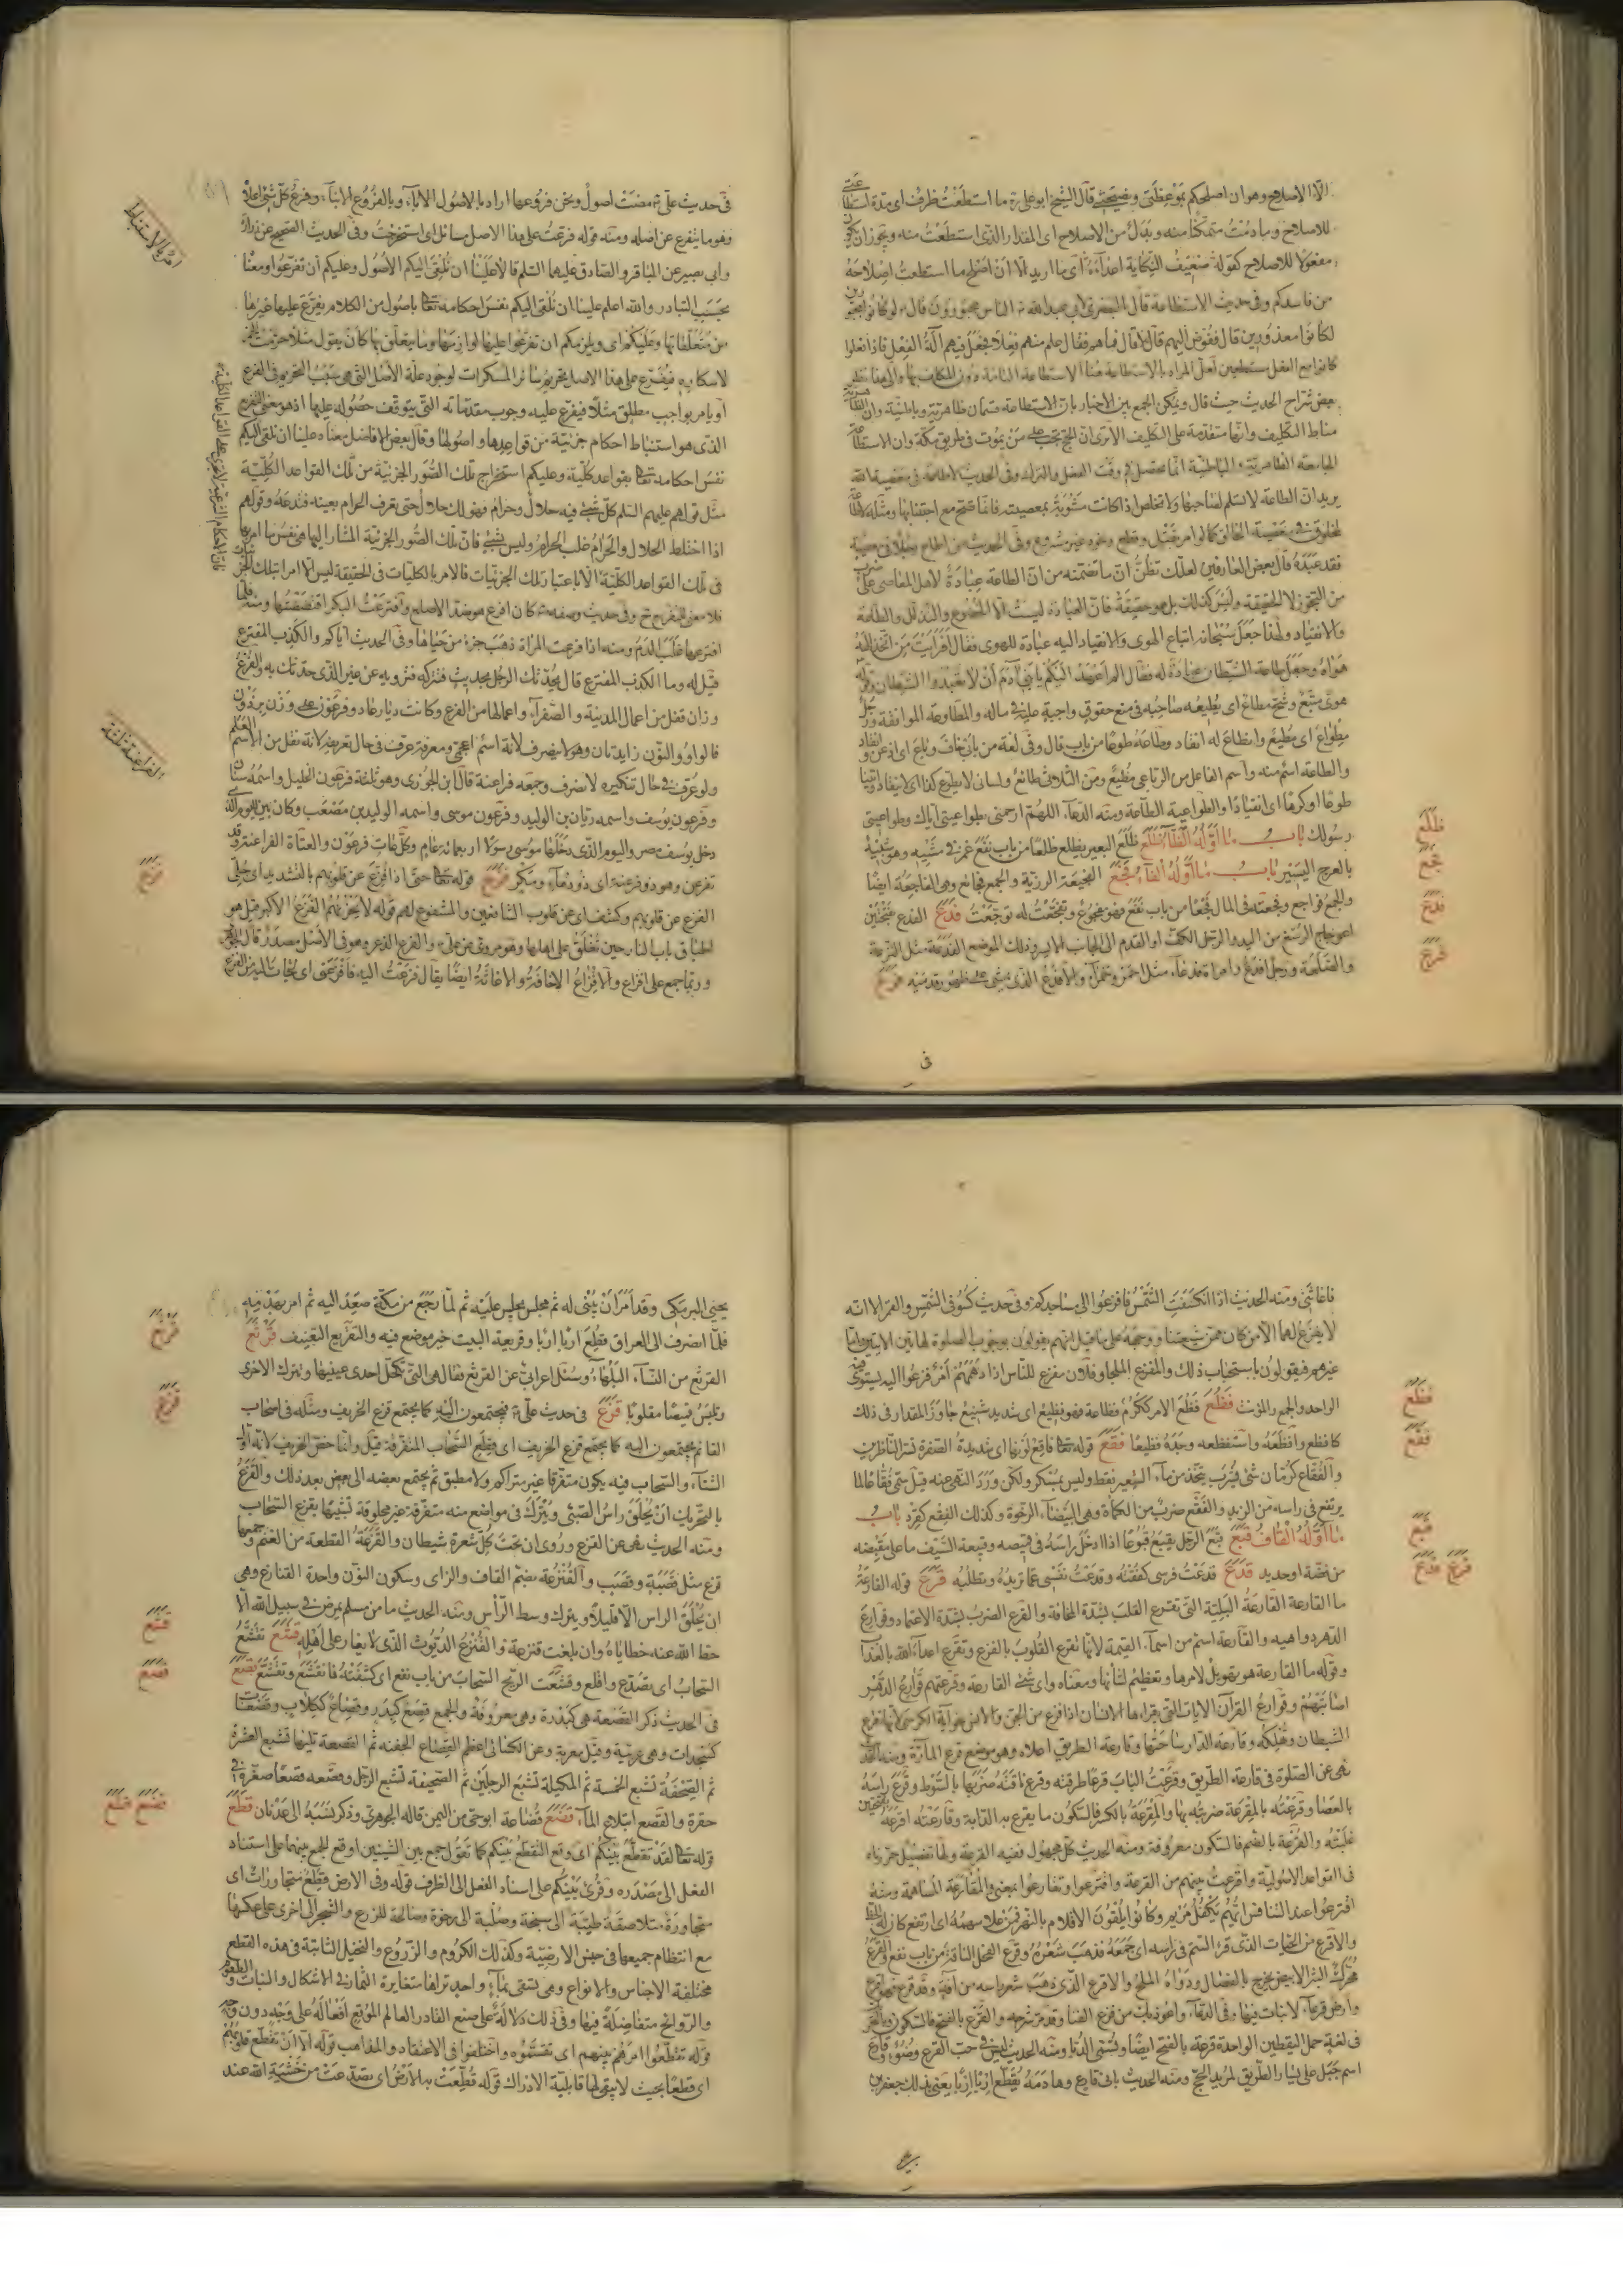 الّا الاصلاح وهو ان اصلحكم بموعظتى ونصيحتى قال الشيخ ابو على ره ما استطعت ظرف اى مدة استطاعتى
للاصلاح وما دمت متمكنا منه وبدل من الاصلاح اى المقدار الذى استطعت منه ويجوز ان يكون
مفعولا للاصلاح كقوله ضعيف النكاية اعداءه اى ما اريد الا ان اصلح ما استطعت اصلاحه
من فاسدكم وفى حديث الاستطاعة قال البصرى لابى عبد الله ع الناس مجبورون قال ع لو كانوا مجبورين
لكانوا معذورين قال ففوض اليهم قال لا قال فما هم فقال علم منهم فعلا فجعل فيهم آلة الفعل فاذا فعلوا
كانوا مع الفعل مستطيعين لعل المراد بالاستطاعة هنا الاستطاعة التامة دون المكلف بها والى هذا نظر
بعض شراح الحديث حيث قال ويمكن الجمع بين الاخبار بان الاستطاعة قسمان ظاهرية وباطنية وان الظاهرية
مناط التكليف وانها متقدمة على التكليف الا ترى ان الحج تجب على من يموت فى طريق مكة وان الاستطاعة
الجامعة الظاهرية والباطنية انما تحصل فى وقت الفعل والترك وفى الحديث لا طاعة فى معصية الله
يريد ان الطاعة لا تسلم لصاحبها ولا تخلص اذا كانت مشوبة بمعصيته فانما تصح مع اجتنابها ومثله لا طاعة
لمخلوق فى معصية الخالق كما لو امر بقتل وقطع ونحوه غير مشروع وفى الحديث من اطاع رجلا فى معصية
فقد عبده قال بعض العارفين لعلك تظن ان ما تضمنه من ان الطاعة عبادة لاهل المعاصى على ضرب
من التجوز لا الحقيقة وليس كذلك بل هو حقيقة فان العبادة ليست الا الخضوع والتذلل والطاعة
والانقياد ولهذا جعل سبحانه اتباع الهوى والانقياد اليه عبادة للهوى فقال أفرأيت من اتخذ الهه
هواه وجعل طاعة الشيطان عبادة له فقال الم اعهد اليكم يا بنى آدم أن لا تعبدوا الشيطان وقوله
هوى متبع وشح مطاع اى يطيعه صاحبه فى منع حقوق واجبة عليه فى ماله والمطاوعة الموافقة ورجل
مطواع اى مطيع وانطاع له انقاد وطاعه طوعا من باب قال وفى لغة من بابى خاف وباع اى اذعن وانقاد
والطاعة اسم منه واسم الفاعل من الرباعى مطيع ومن الثلاثى طائع ولسانه لا يطوع كذا اى لا ينقاد وائتيا
طوعا او كرها اى انقيادا والطواعية الطاعة ومنه الدعاء اللهم ارحمنى بطواعيتى اياك وطواعيتى
رسولك باب ما اوله الظاء ظلع ظلع البعير يظلع ظلعا من باب نفع غمز فى مشيه وهو شبيه
بالعرج اليسير باب ما اوله الفاء فجع الفجيعة الرزية والجمع فجائع وهى الفاجعة ايضا
والجمع فواجع وفجعته فى المال فجعا من باب نفع فهو مفجوع وتفجعت له توجعت فدع الفدع بفتحتين
اعوجاج الرسغ من اليد والرجل الكف او القدم الى الجانب الايسر وذلك الموضع الفدعة مثل النزعة
والصلعة ورجل افدع وامراة فدعاء مثل احمر وحمراء والافدع الذى يمشى على ظهور قدميه فرع
ظلع
فجع
فدع
فرع
فى
فى حديث على ع مضت اصول ونحن فروعها اراد بالاصول الآباء وبالفروع الابناء وفرع كل شئ اعلاه
وهو ما يتفرع عن اصله ومنه قوله فرعت على هذا الاصل مسائل اى استخرجت وفى الحديث الصحيح عن زرارة
وابى بصير عن الباقر والصادق عليهما السلم قالا علينا ان نلقى اليكم الاصول وعليكم ان تفرعوا ومعنا
بحسب التبادر والله اعلم علينا ان نلقى اليكم نفس احكامه تعالى باصول من الكلام يفترع عليها غيرها
من متعلقاتها وعليكم اى ويلزمكم ان تفرعوا عليها لوازمها وما يتعلق بها كأن يقول مثلا حرمت الخمر
لاسكاره فيفترع على هذا الاصل تحريم سائر المسكرات لوجود علة الاصل التى هى سبب التحريم فى الفرع
او يامر بواجب مطلق مثلا فيفرع عليه وجوب مقدماته التى يتوقف حصوله عليها اذ هو معنى التفريع
الذى هو استنباط احكام جزئية من قواعدها واصولها وقال بعض الافاضل معناه علينا ان نلقى اليكم
نفس احكامه تعالى بقواعد كلية وعليكم استخراج تلك الصور الجزئية من تلك القواعد الكلية
مثل قولهم عليهم السلم كل شئ فيه حلال وحرام فهو لك حلال حتى تعرف الحرام بعينه فتدعه وقولهم
اذا اختلط الحلال والحرام غلب الحرام وليس بشئ فان تلك الصور الجزئية المشار اليها هى نفس ما امر بها
فى تلك القواعد الكلية الا باعتبار تلك الجزئيات فالامر بالكليات فى الحقيقة ليس الا امرا بتلك الجزئيات
فلا معنى للتفريع ح وفى حديث وصفه ع كان افرع هو ضد الاصلع وافترعت البكر افتضضتها ومنه فلما
افترعها غلب الدم ومنه اذا فرعت المراة ذهب جزء من حيائها وفى الحديث اياكم والكذب المفترع
قيل له وما الكذب المفترع قال يحدثك الرجل بحديث فتتركه فترويه عن غير الذى حدثك به والفرع
وزان قفل من اعمال المدينة والصفراء واعمالها من الفرع وكانت ديار عاد وفرعون على وزن برذون
قالوا والنون زايدتان وهو لا ينصرف لانه اسم اعجمى ومعرفة عرف فى حال تعريفه لانه نقل من الاسم العلم
ولو عرف فى حال تنكيره لانصرف وجمعه فراعنة قال ابن الجوزى وهو ثلثة فرعون الخليل واسمه سنان
وفرعون يوسف واسمه ريان بن الوليد وفرعون موسى واسمه الوليد بن مصعب وكان بين اليوم الذى
دخل يوسف مصر واليوم الذى دخلها موسى رسولا اربعمائة عام وكل عات فرعون والعتاة الفراعنة وقد
تفرعن وهو ذو فرعنة اى ذو دهاء ومكر فزع قوله تعالى حتى اذا فزع عن قلوبهم بالتشديد اى جلى
الفزع عن قلوبهم وكشف اى عن قلوب الشافعين والمشفوع لهم قوله لا يحزنهم الفزع الاكبر قيل هو
اطباق باب النار حين تغلق على اهلها وهو مروى عن على ع والفزع الذعر وهو فى الاصل مصدر قال الجوهرى
وربما جمع على افزاع والافزاع الاخافة والاغاثة ايضا يقال فزعت اليه فافزعنى اى لجأت اليه من الفزع
الفراعنة ثلثة
فزع
فاغاثنى ومنه الحديث اذا انكسفت الشمس فافزعوا الى مساجدكم وفى حديث كسوفى الشمس والقمر الا انه
لا يفزع لهما الا من كان من شيعتنا ووجهه على ما قيل انهم يقولون بوجوب الصلوة لهاتين الآيتين واما
غيرهم فيقولون باستحباب ذلك والمفزع الملجأ وفلان مفزع للناس اذا دهمهم امر فزعوا اليه يستوى فيه
الواحد والجمع والمؤنث فظع فظع الامر ككرم فظاعة فهو فظيع اى شديد شنيع جاوز المقدار فى ذلك
كافظع وافظعه واستفظعه وجده فظيعا فقع قوله تعالى فاقع لونها اى شديدة الصفرة تسر الناظرين
والفقاع كرمان شئ يشرب يتخذ من ماء الشعير فقط وليس بمسكر ولكن ورد النهى عنه قيل سمى فقاعا لما
يرتفع فى راسه من الزبد والفقع ضرب من الكمأة وهى البيضاء الرخوة وكذلك الفقع كقرد باب
ما اوله القاف قبع قبع الرجل يقبع قبوعا اذا ادخل راسه فى قميصه وقبيعة السيف ما على مقبضه
من فضة او حديد قدع قدعت فرسى كففته وقدعت نفسى عما تريده وتطلبه قرع قوله القارعة
ما القارعة القارعة البلية التى تقرع القلب بشدة المخافة والقرع الضرب بشدة الاعتماد وقوارع
الدهر دواهيه والقارعة اسم من اسماء القيمة لانها تقرع القلوب بالفزع وتقرع اعداء الله بالعذاب
وقوله ما القارعة هو تهويل لامرها وتعظيم لشأنها ومعناه واى شئ القارعة وقرعتهم قوارع الدهر
اصابتهم وقوارع القرآن الآيات التى يقراها الانسان اذا فزع من الجن والانس نحو آية الكرسى لانها تقرع
الشيطان وتهلكه وقارعة الدار ساحتها وقارعة الطريق اعلاه وهو موضع قرع المارة ومنه الحديث
نهى عن الصلوة فى قارعة الطريق وقرعت الباب قرعا طرقته وقرع ناقته ضربها بالسوط وقرع راسه
بالعصا وقرعته بالمقرعة ضربته بها والمقرعة بالكسر فالسكون ما يقرع به الدابة وقارعته اقرعه بفتحتين
غلبته والقرعة بالضم فالسكون معروفة ومنه الحديث كل مجهول ففيه القرعة ولها تفصيل حررناه
فى القواعد الاصولية واقرعت بينهم من القرعة واقترعوا وتقارعوا بمعنى والمقارعة المساهمة ومنه
اقترعوا عند التنافس ايهم يكفل مريم وكانوا يلقون الاقلام بالنهر فمن علا سهمه اى ارتفع كان له الحظ
والاقرع من الحيات الذى قرى السم فى راسه اى جمعه فذهب شعره وقرع الفحل الناقة من باب نفع والقرع
محرك البثر الابيض يخرج بالفصال ودواه الملح والاقرع الذى ذهب شعر راسه من آفة وقد قرع فهو اقرع
وارض قرعاء لا نبات فيها وفى الدعاء واعوذ بك من قرع الفناء وقد مر شرحه والقرع بالفتح فالسكون
فى لغة حمل اليقطين الواحدة قرعة بالفتح ايضا ويسمى الدبا ومنه الحديث ليس فى حب القرع وضوء وقارع
اسم جبل على يسار الطريق لمريد الحج ومنه الحديث بانى قارع وهادمه يقطع اربا اربا يعنى بذلك جعفر بن
فظع
فقع
قبع
قدع قرع
يحيى البرمكى وقد امر ان يبنى له ثم مجلس يجلس عليه ثم لما رجع من مكة صعد اليه ثم امر بهدمه
فلما انصرف الى العراق قطع اربا اربا وقريعة البيت خير موضع فيه والتقريع التعنيف قرثع
القرثع من النساء البلهاء وسئل اعرابى عن القرثع فقال هى التى تكحل احدى عينيها وتترك الاخرى
وتلبس قميصا مقلوبا قزع فى حديث على ع فيجتمعون اليه كما يجتمع قزع الخريف ومثله فى اصحاب
القائم يجتمعون اليه كما يجتمع قزع الخريف اى قطع السحاب المتفرقة قيل وانما خص الخريف لانه اول
الشتاء والسحاب فيه يكون متفرقا غير متراكم ولا مطبق ثم يجتمع بعضه الى بعض بعد ذلك والقزع
بالتحريك ان يحلق راس الصبى ويترك فى مواضع منه متفرقة غير محلوقة تشبيها بقزع السحاب
ومنه الحديث نهى عن القزع وروى ان تحت كل شعرة شيطان والقزعة القطعة من الغنم وجمعها
قزع مثل قصبة وقصب والقنزعة بضم القاف والزاى وسكون النون واحدة القنازع وهى
ان يحلق الراس الا قليلا ويترك وسط الرأس ومنه الحديث ما من مسلم يمرض فى سبيل الله الا
حط الله عنه خطاياه وان بلغت قنزعة والقنزع الديوث الذى لا يغار على اهله قشع تقشع
السحاب اى تصدع واقلع وقشعت الريح السحاب من باب نفع اى كشفته فانقشع وتقشع قصع
فى الحديث ذكر القصعة هى كبدرة وهى معروفة والجمع قصع كبدر وقصاع ككلاب وقصعات
كسجدات وهى عربية وقيل معربة وعن الكسائى اعظم القصاع الجفنة ثم القصعة تليها تشبع العشرة
ثم الصحفة تشبع الخمسة ثم المكيلة تشبع الرجلين ثم الصحيفة تشبع الرجل وقصعه قصعا صغره اى
حقره والقصع ابتلاع الماء قضع قضاعة ابو حى من اليمن قاله الجوهرى وذكر نسبه الى عدنان قطع
قوله تعالى لقد تقطع بينكم اى وقع التقطع بينكم كما تقول جمع بين الشيئين اوقع الجمع بينهما على اسناد
الفعل الى مصدره وقرئ بينكم على اسناد الفعل الى الظرف قوله وفى الارض قطع متجاورات اى
متجاورة متلاصقة طيبة الى سبخة وصلبة الى رخوة وصالحة للزرع والشجر الى اخرى على عكسها
مع انتظام جميعها فى جنس الارضية وكذلك الكروم والزروع والنخيل النابتة فى هذه القطع
مختلفة الاجناس والانواع وهى تسقى بماء واحد تراها متغايرة الثمار فى الاشكال والنبات والطعوم
والروائح متفاضلة فيها وفى ذلك دلالة على صنع القادر العالم الموقع افعاله على وجه دون وجه
قوله تقطعوا امرهم بينهم اى تقسموه واختلفوا فى الاعتقاد والمذاهب قوله الا ان تقطع قلوبهم
اى قطعا بحيث لا يبقى لها قابلية الادراك قوله قطعت به الارض اى تصدعت من خشية الله عند
قرثع
قزع
قشع
قصع
قضع قطع